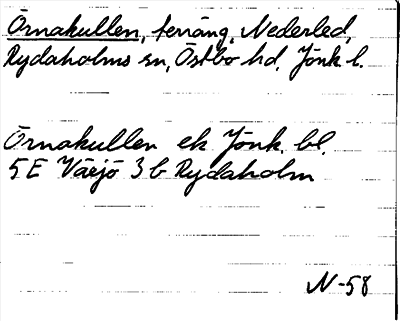 Örnakullen, terräng, Nederled,
Rydaholms sn, Östbo hd, Jönk l.
Örnakullen ek Jönk. bl.
5E Växjö 3b Rydaholm
N-58